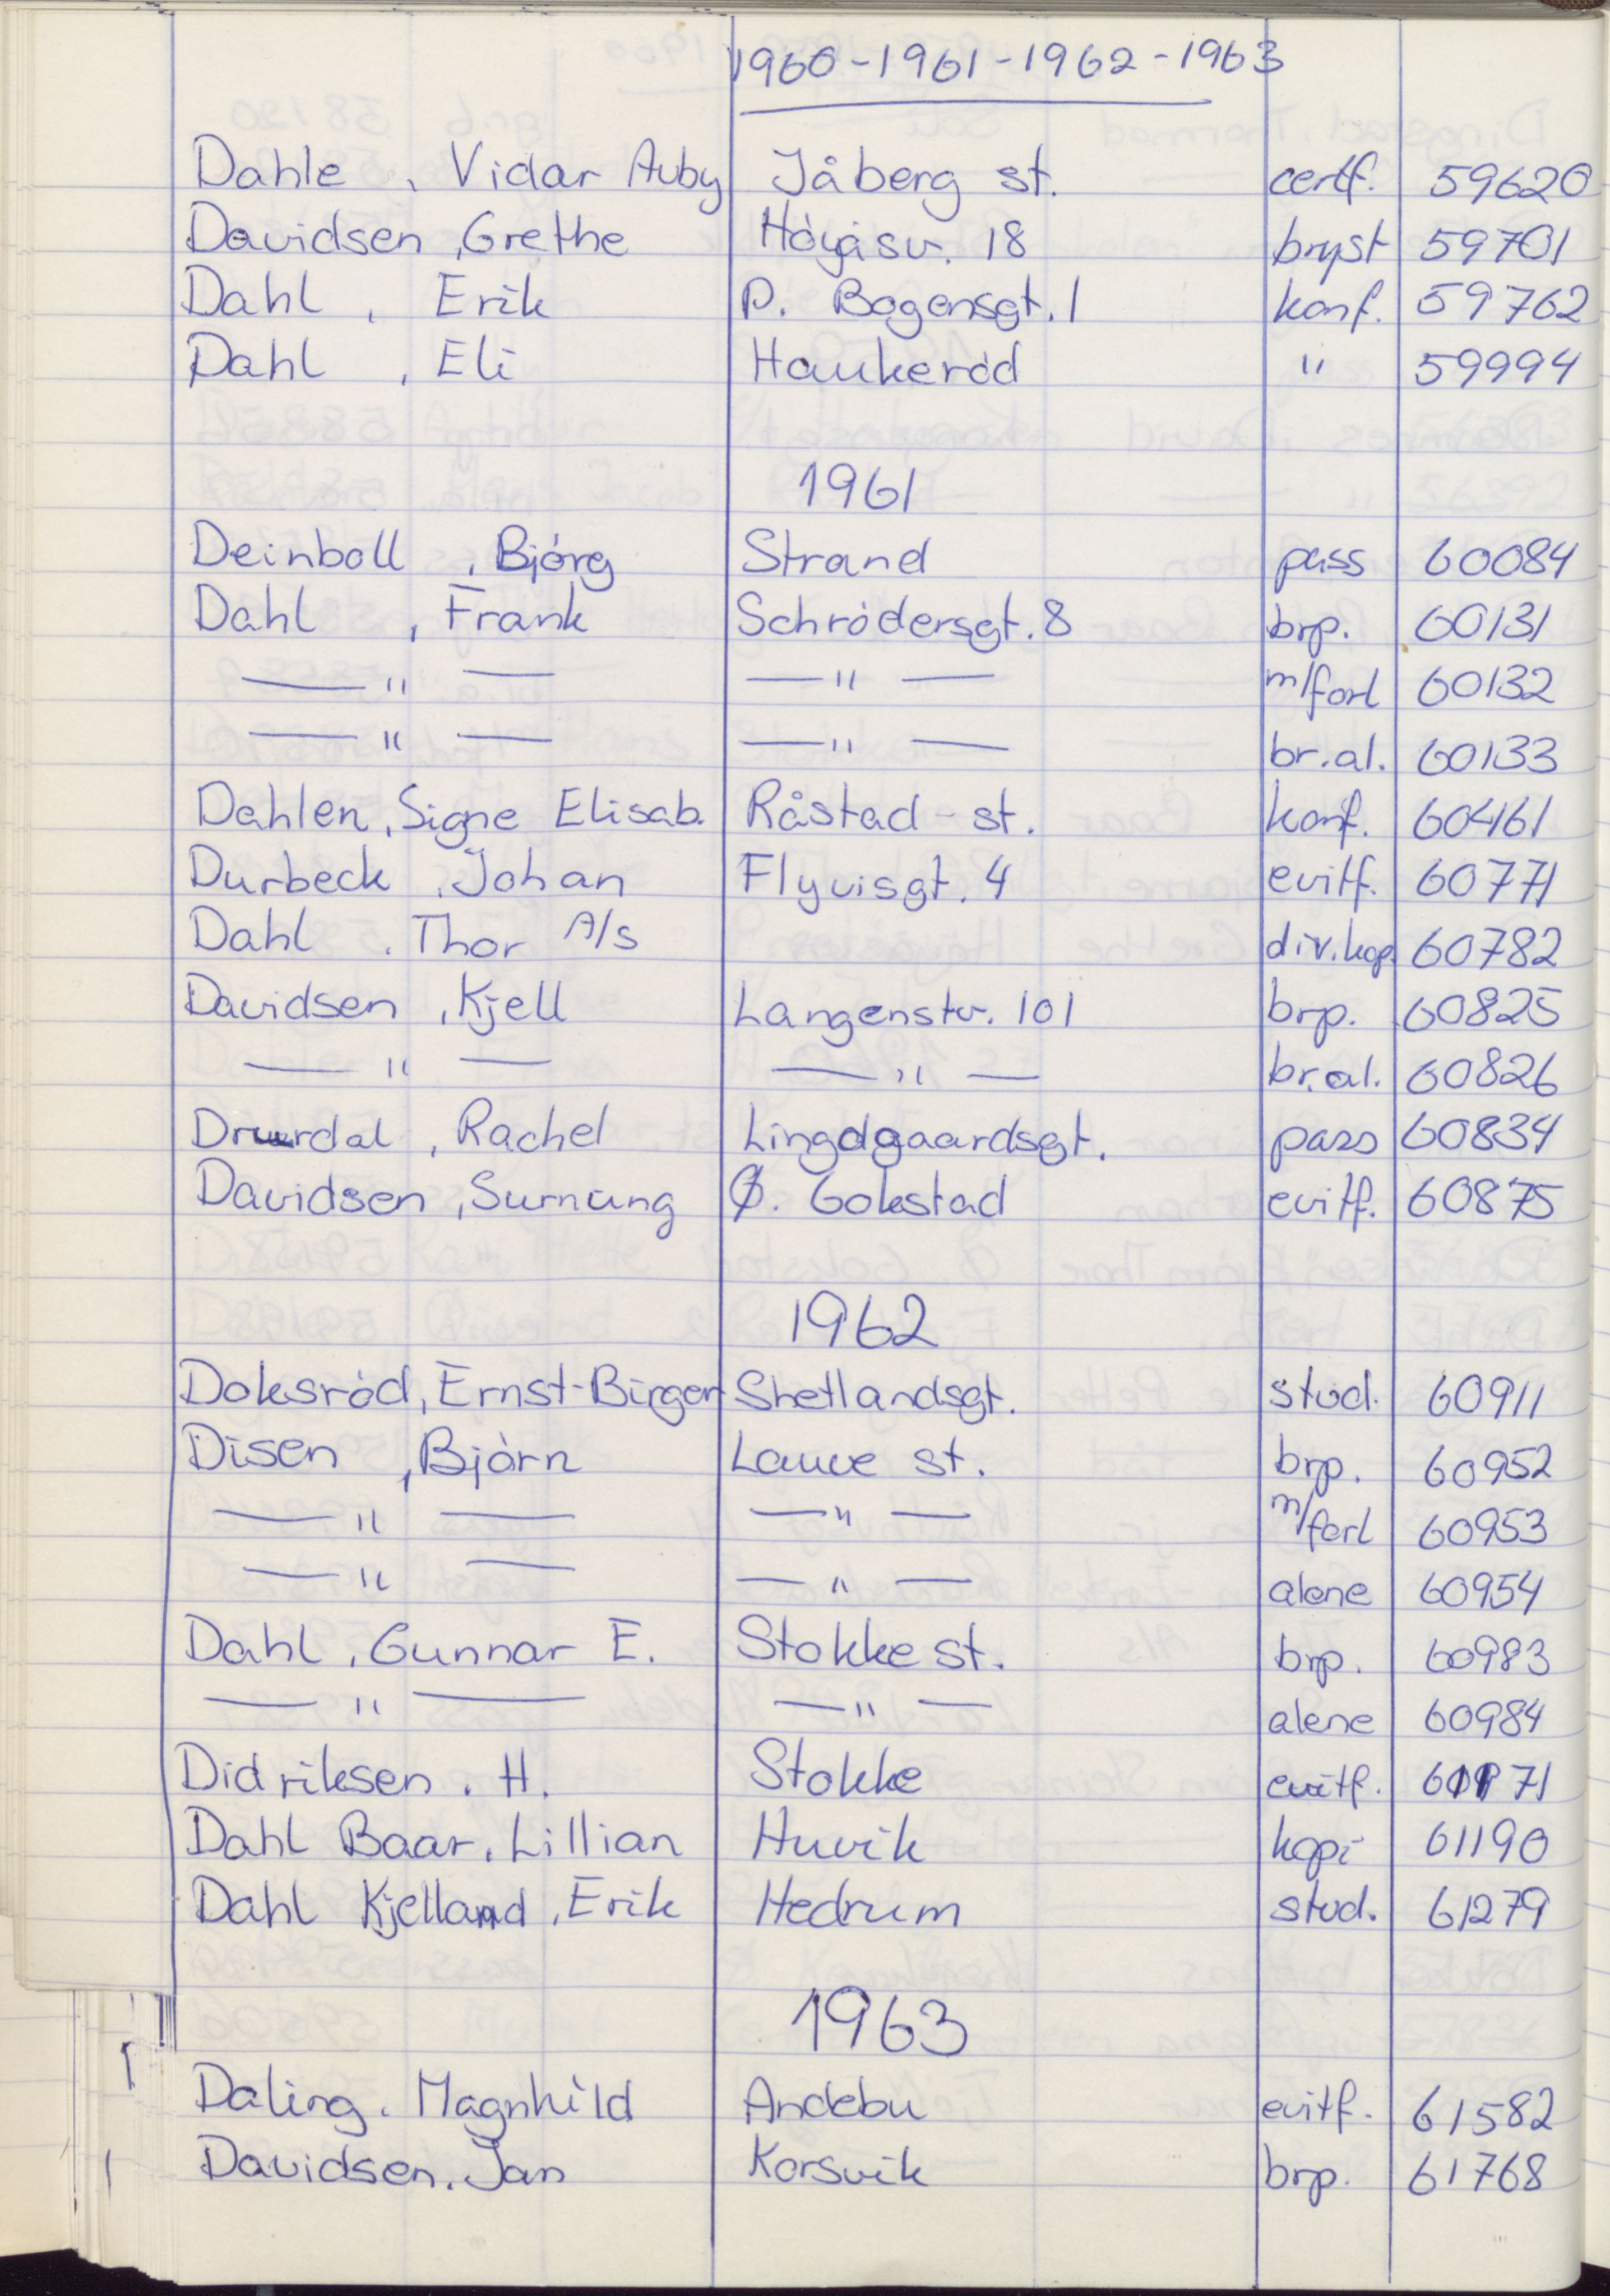 1960-1961-1962-1963
Dahle, Vidar Auby Jåberg st. certf. 59620
Davidsen, Grethe Höyåsv. 18 bryst 59701
Dahl, Erik P. Bogensgt. 1 konf. 59762
Dahl, Eli Haukeröd " 59994
1961
Deinboll, Björg Strand pass 60084
Dahl, Frank Schrödersgt. 8 brp. 60131
— " — — " — m/forl 60132
— " — — " — br.al. 60133
Dahlen, Signe Elisab. Råstad-st. konf. 60461
Durbeck, Johan Flyvisgt. 4 evitf. 60771
Dahl, Thor A/s div.kop. 60782
Davidsen, Kjell Langenstv. 101 brp. 60825
— " — — " — br.al. 60826
Rachel Lingdgaardsgt. pass 60834
Davidsen, Surnung Ø. Gokstad evitf. 60875
1962
Doksröd, Ernst-Birger Shetlandsgt. stud. 60911
Disen, Björn Lauve st. brp. 60952
— " — — " — m/forl 60953
— " — — " — alene 60954
Dahl, Gunnar E. Stokke st. brp. 60983
— " — — " — alene 60984
Didriksen, H. Stokke evitf.
Dahl Baar, Lillian Huvik kopi 61190
Dahl Kjelland, Erik Hedrum stud. 61279
1963
Daling, Magnhild Andebu evitf. 61582
Davidsen, Jan Korsvik brp. 61768